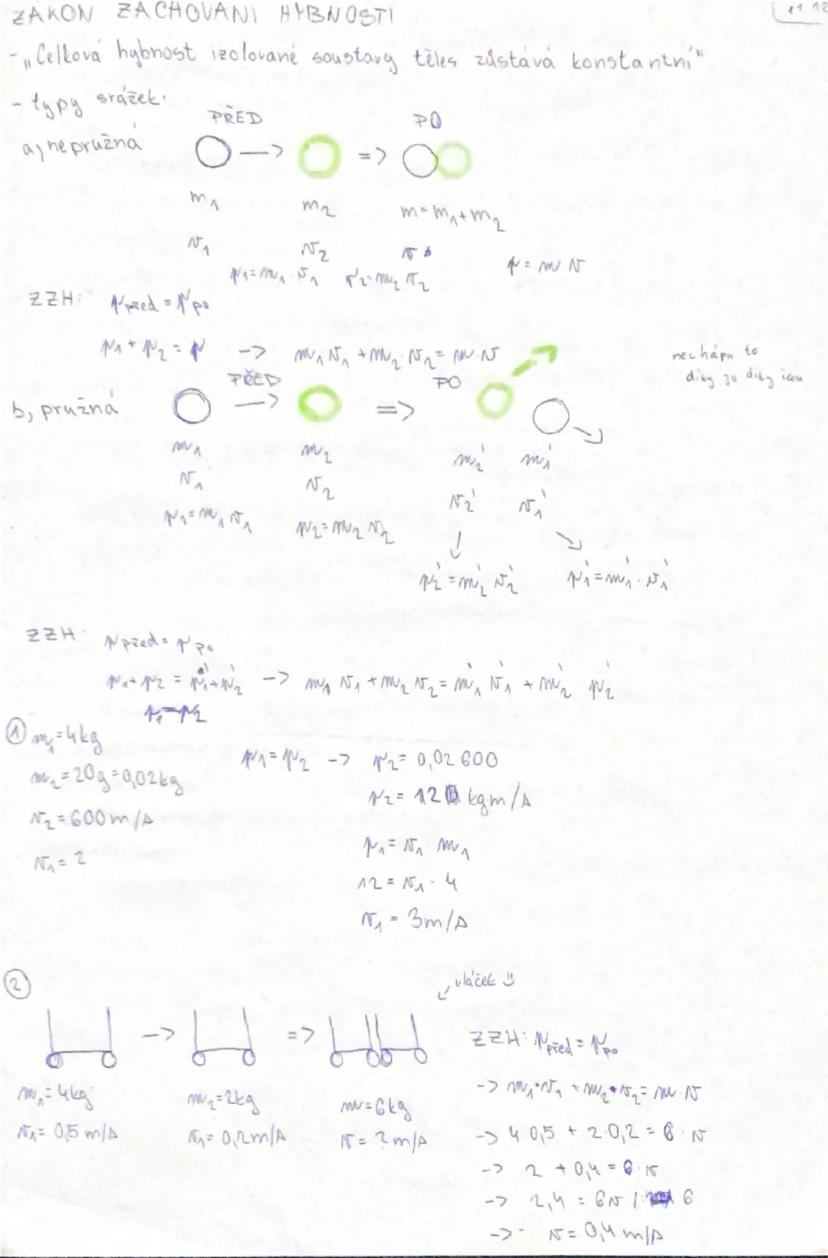 ZÁKON ZACHOVÁNÍ HYBNOSTI
11.12
- „Celková hybnost izolované soustavy těles zůstává konstantní"
- typy srážek:
PŘED PO
a, nepružná -> =>
m₁ m₂ m=m₁+m₂
v₁ v₂ v
p₁=m₁·v₁ p₂=m₂ v₂ p=m v
ZZH: p před = p po
p₁ + p₂ = p -> m₁v₁ + m₂·v₂ = m·v
nechápu to
díky jo díky
PŘED PO
b, pružná -> =>
m₁ m₂ m₂' m₁'
v₁ v₂ v₂' v₁'
p₁=m₁v₁ p₂=m₂ v₂
p₂'=m₂' v₂' p₁'=m₁'·v₁'
ZZH: p před = p po
p₁+p₂ = p₁'+p₂' -> m₁ v₁ + m₂ v₂ = m₁' v₁' + m₂' p₂'
p₁=p₂
① m₁=4kg
m₂=20g=0,02kg
v₂=600m/s
v₁=?
p₁=p₂ -> p₂=0,02 600
p₂=12 kgm/s
p₁=v₁ m₁
12=v₁·4
v₁=3m/s
②
vláček
-> =>
m₁=4kg m₂=2kg m=6kg
v₁=0,5m/s v₁=0,2m/s v=?m/s
ZZH: p před = p po
-> m₁·v₁+m₂·v₂=m·v
-> 4 0,5 + 2 0,2 = 6·v
-> 2 + 0,4 = 6·v
-> 2,4 = 6v / 6
-> v=0,4 m/s